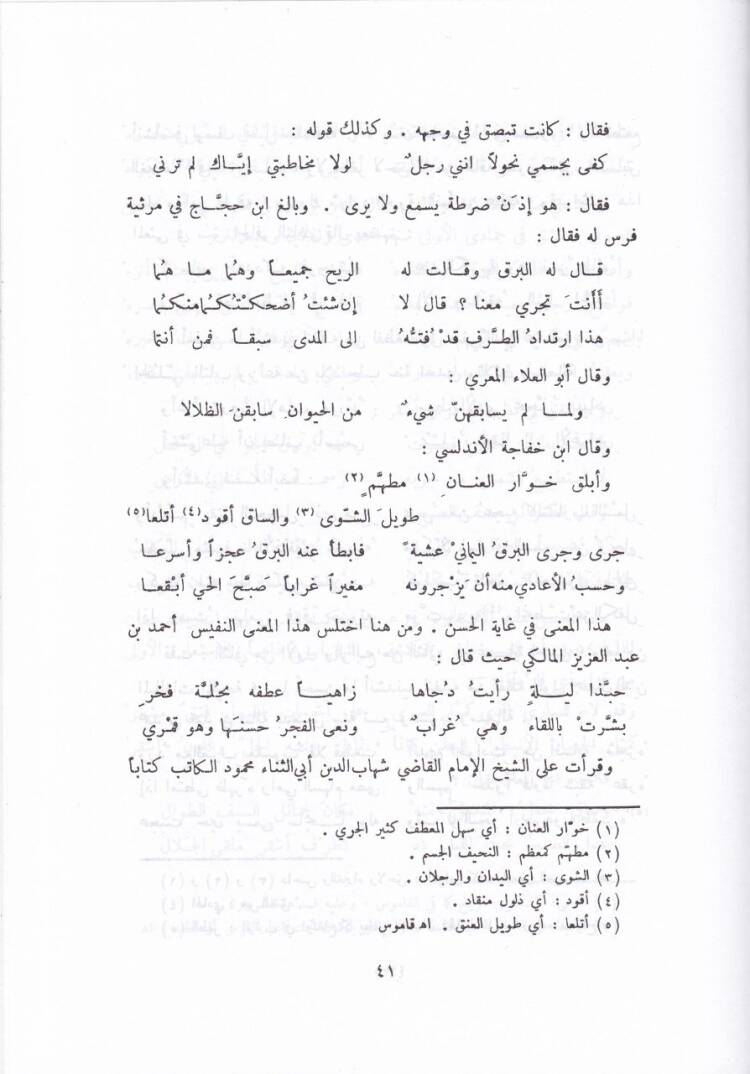 فقال : كانت تبصق في وجهه . وكذلك قوله :
كفى بجسمي نحولاً انني رجلٌ لولا مخاطبتي إيّاك لم ترني
فقال : هو إذَنْ ضرطة يسمع ولا يرى . وبالغ ابن حجّاج في مرثية
فرس له فقال :
قال له البرق وقالت له الريح جميعاً وهُما ما هُما
أَأَنتَ تجري معنا ؟ قال لا إن شئتُ أضحكتُكُما منكُما
هذا ارتدادُ الطَّرف قدْ فُتُّهُ إلى المدى سبقاً فمن أنتما
وقال أبو العلاء المعري :
ولما لم يسابقهنّ شيءٌ من الحيوانِ سابقنَ الظلالا
وقال ابن خفاجة الأندلسي :
وأبلق خوّار العنانِ (١) مطهَّمٍ (٢)
طويلَ الشوّى (٣) والساق أقود (٤) أتلعا (٥)
جرى وجرى البرقُ اليمانيْ عشيةً فابطأ عنه البرقُ عجزاً وأسرعا
وحسبُ الأعادي منه أن يَزجرونه مغيراً غراباً صبَّحَ الحي أبْقعا
هذا المعنى في غاية الحسن . ومن هنا اختلس هذا المعنى النفيس أحمد بن
عبد العزيز المالكي حيث قال :
حبّذا ليلةٍ رأيتُ دُجاها زاهياً عطفه بجُلّة فخرِ
بشّرتْ باللقاء وهي غُرابٌ ونعى الفجرُ حسنَها وهو قمْري
وقرأت على الشيخ الإمام القاضي شهاب الدين أبي الثناء محمود الكاتب كتاباً
(١) خوّار العنان : أي سهل المعطف كثير الجري .
(٢) مطهّم كمعظم : النحيف الجسم .
(٣) الشوى : أي اليدان والرجلان .
(٤) أقود : أي ذلول منقاد .
(٥) أتلعا : أي طويل العنق . اه قاموس
٤١